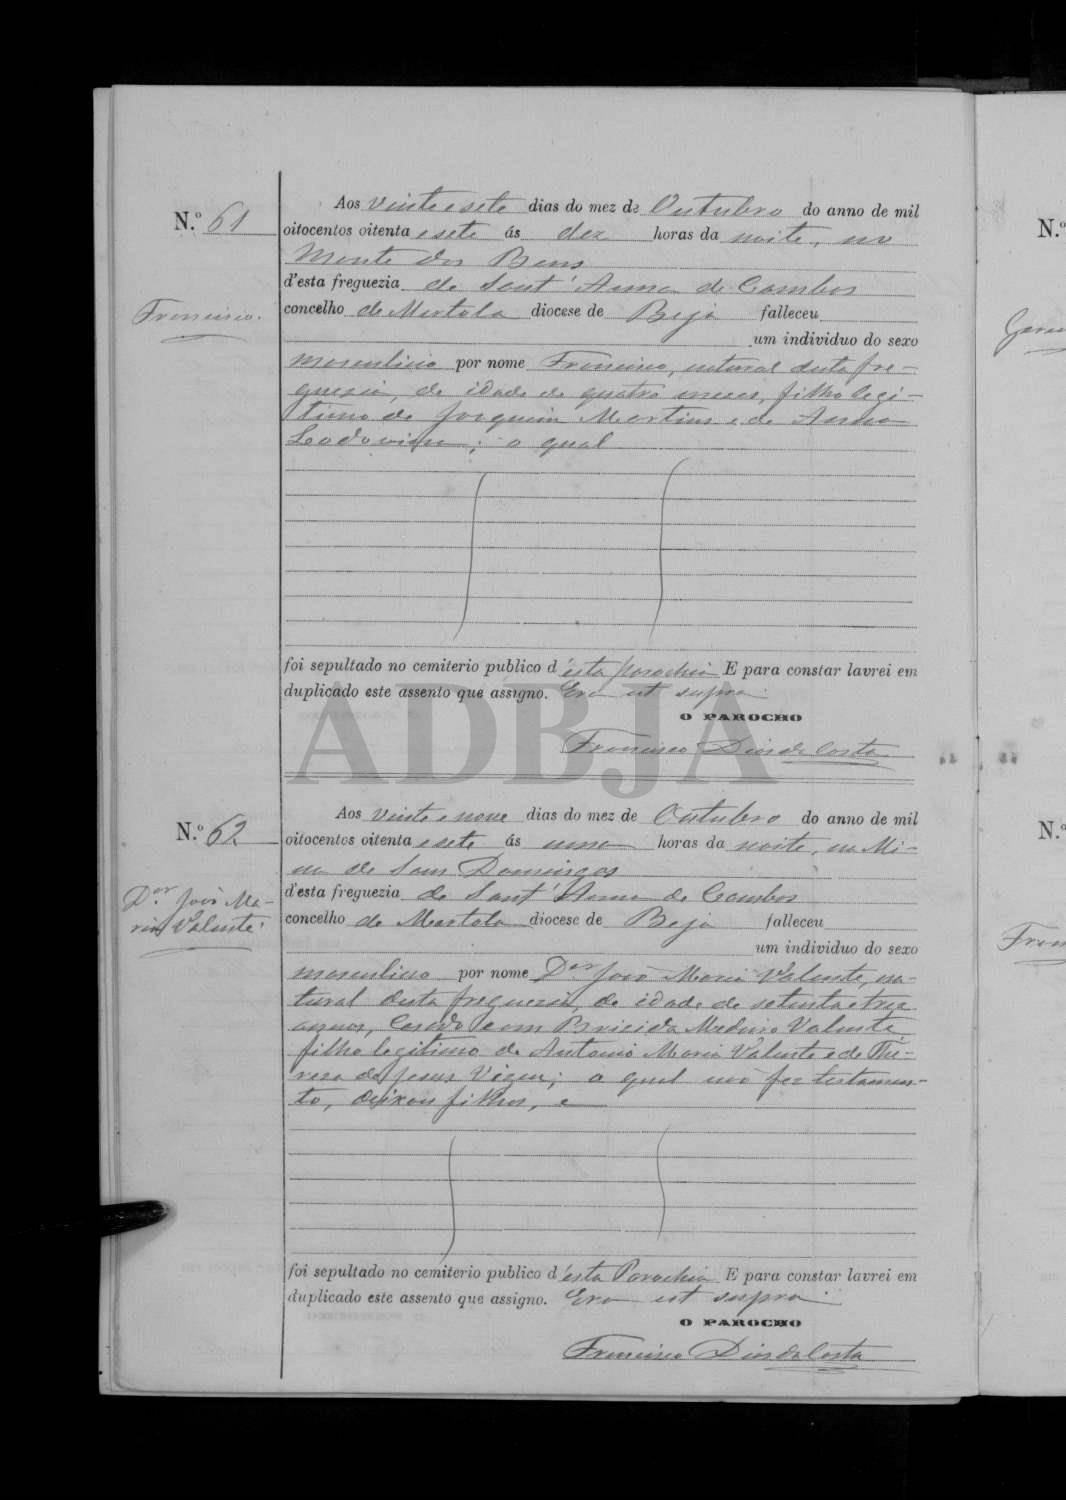 N.º 61
Francisco.
Aos vinte e sete dias do mez de Outubro do anno de mil
oitocentos oitenta e sete ás dez horas da noite, no
Monte dos Bens
d'esta freguezia de Sant'Anna de Cambos
concelho de Mertola diocese de Beja falleceu
um individuo do sexo
masculino por nome Francisco, natural desta fre-
guezia, de idade de quatro mezes, filho legi-
timo de Joaquim Martins e de Anna
; o qual
foi sepultado no cemiterio publico d'esta parochia E para constar lavrei em
duplicado este assento que assigno. Era ut supra.
O PAROCHO
Francisco Dias da Costa
ADBJA
N.º 62
D.or João Ma-
ria Valente.
Aos vinte e nove dias do mez de Outubro do anno de mil
oitocentos oitenta e sete ás uma horas da noite, na Mi-
na de Sam Domingos
d'esta freguezia de Sant'Anna de Cambos
concelho de Mertola diocese de Beja falleceu
um individuo do sexo
masculino por nome D.or João Maria Valente, na-
tural desta freguezia, de idade de setenta e trez
annos, Casado com Bricida Valente
filho legitimo de Antonio Maria Valente e de The-
reza de Jesus ; o qual não fez testamen-
to, deixou filhos, e
foi sepultado no cemiterio publico d'esta Parochia E para constar lavrei em
duplicado este assento que assigno. Era ut supra.
O PAROCHO
Francisco Dias da Costa
N.º
N.º
Fran